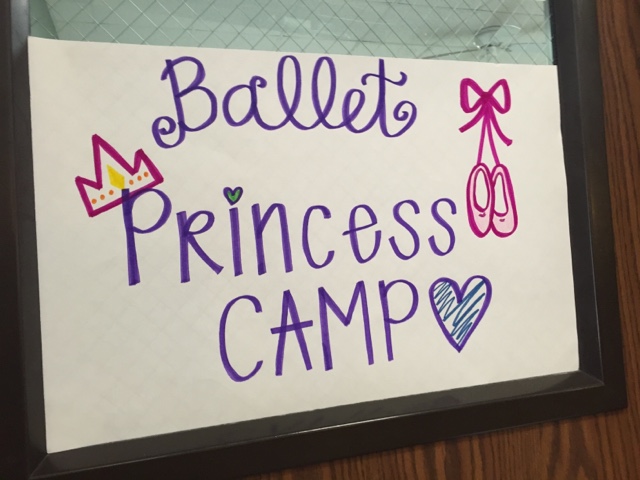 Ballet
Princess
CAMP